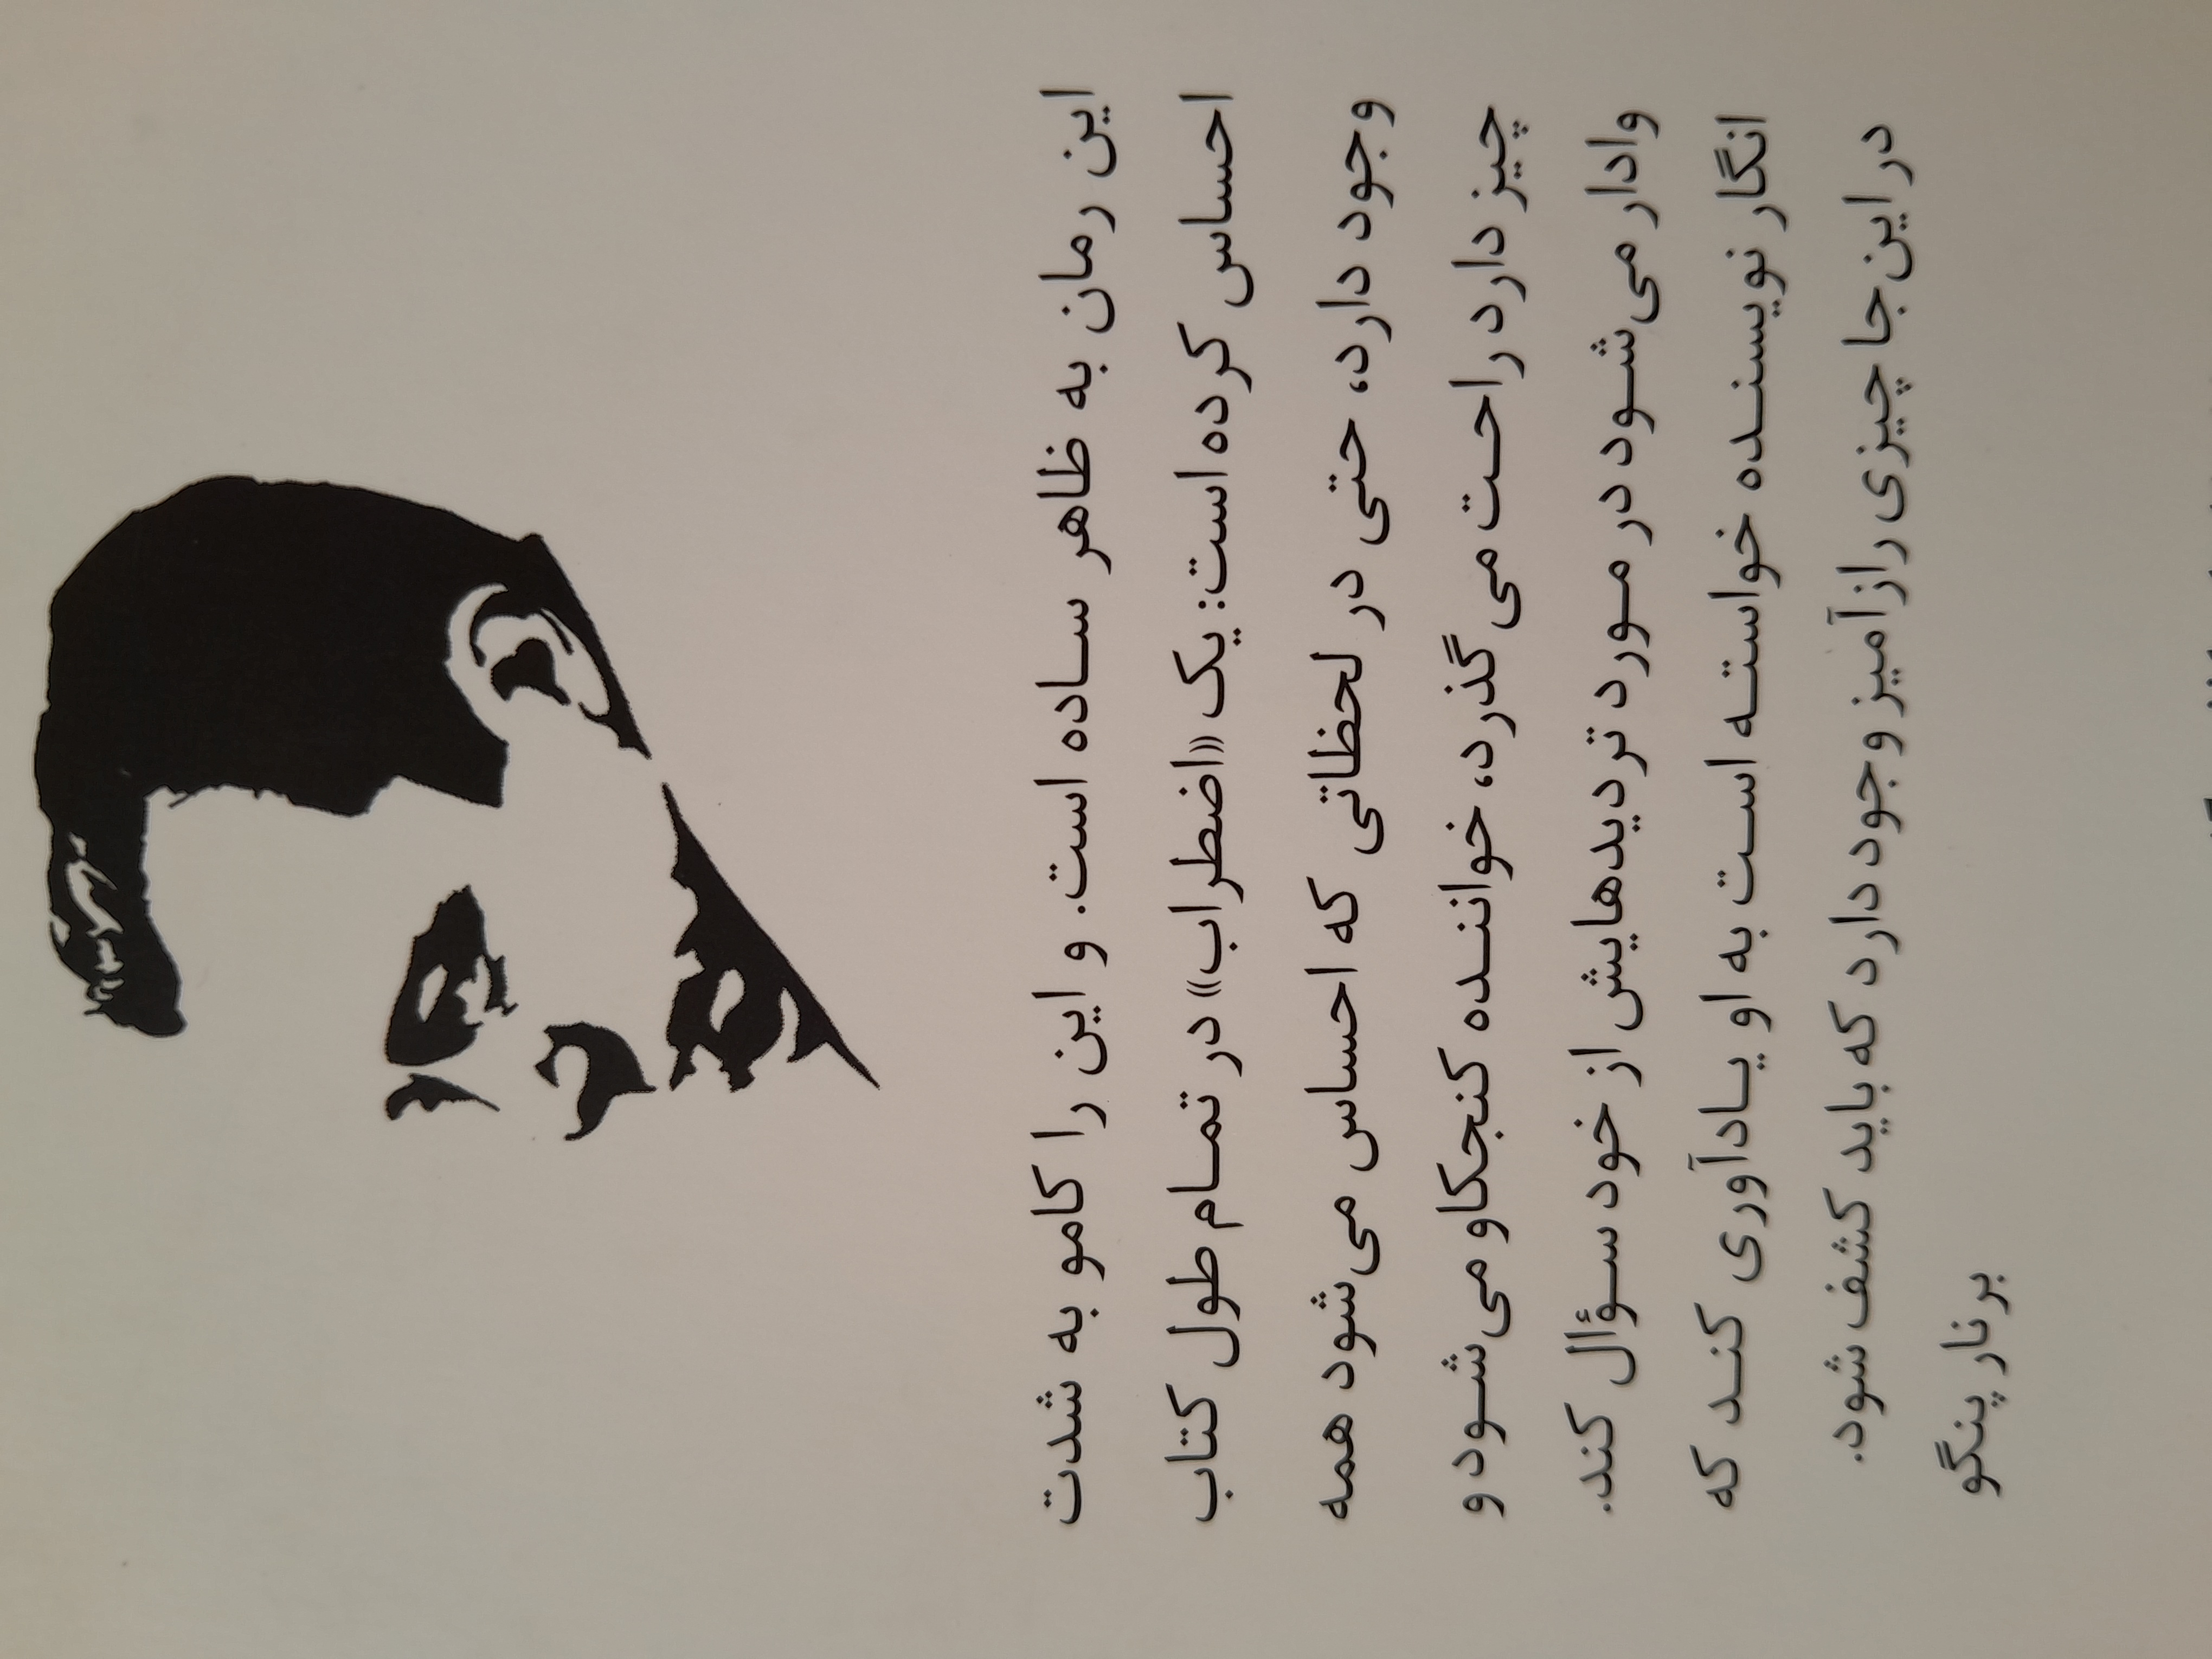 این رمان به ظاهر ساده است. و این را کامو به شدت
احساس کرده است: یک «اضطراب» در تمام طول کتاب
وجود دارد، حتی در لحظاتی که احساس می‌شود همه
چیز دارد راحت می‌گذرد، خواننده کنجکاو می‌شود و
وادار می‌شود در مورد تردیدهایش از خود سؤال کند.
انگار نویسنده خواسته است به او یادآوری کند که
در این‌جا چیزی رازآمیز وجود دارد که باید کشف شود.
برنار پنگو